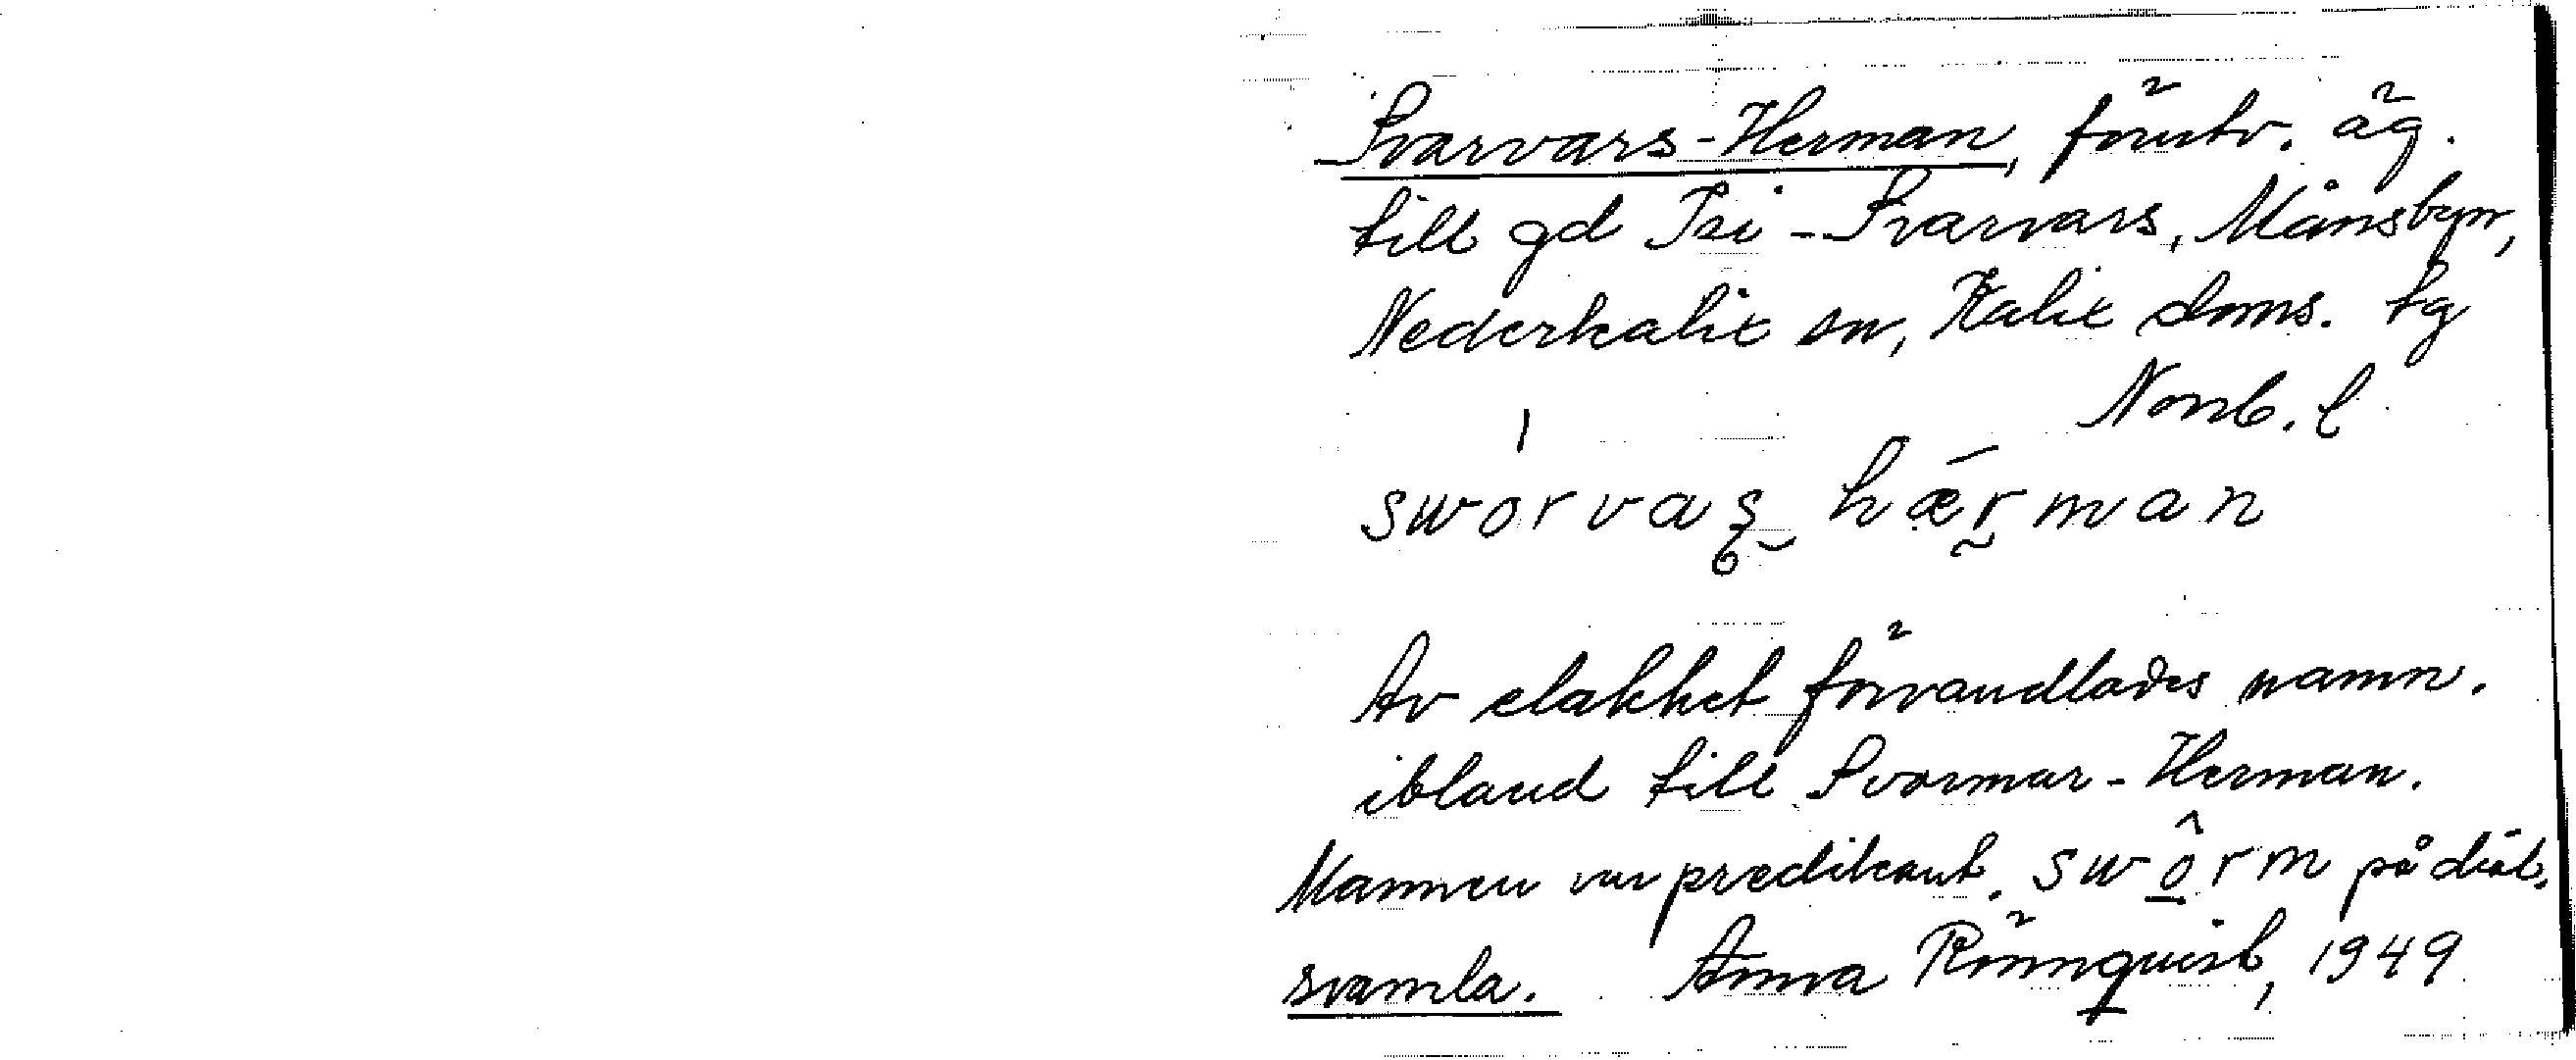 Svarvars-Herman, förutv. äg.
till gd Isi-Svarvars, Månsbyn,
Nederkalix sn, Kalix doms. tg
Norrb. l
sworvaş hærman
Av elakhet förvandlades namn.
ibland till Svormar-Herman.
Mannen var predikant. swôrm på dial.
svamla. Anna Rönnquist, 1949